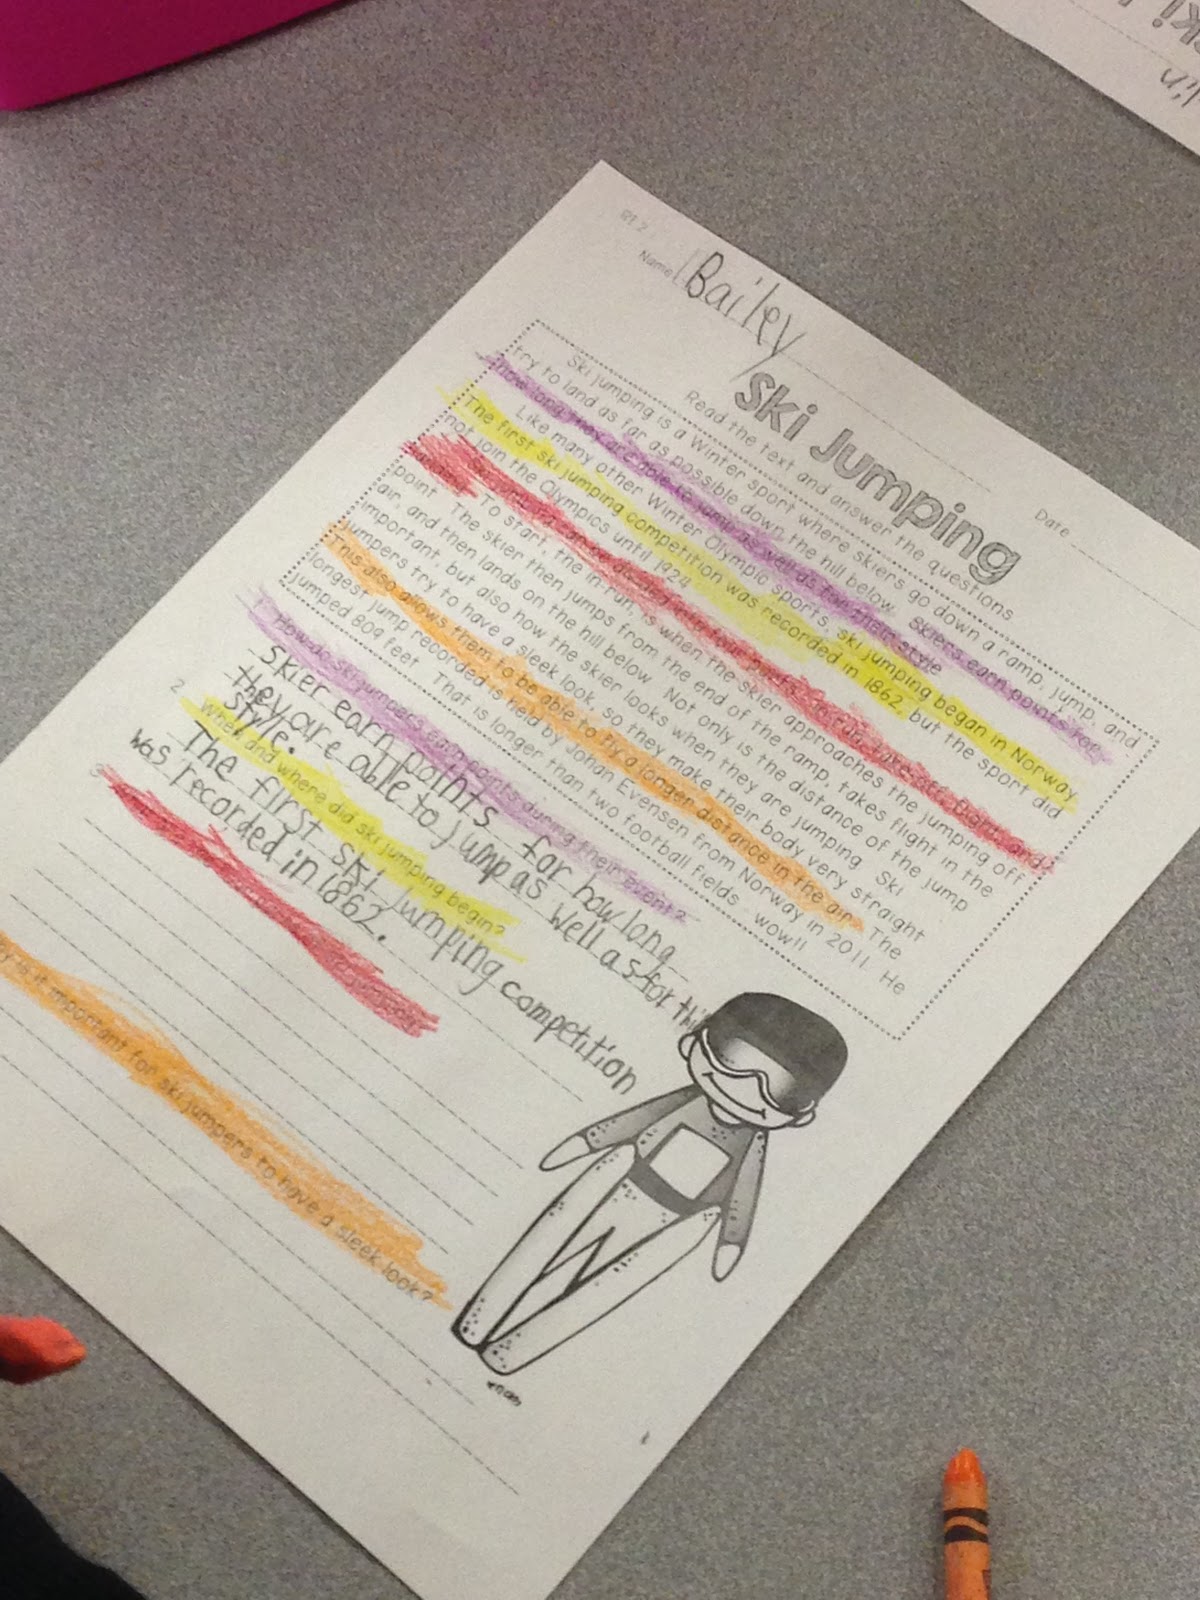 RI.2
Name Bailey Date
Ski Jumping
Read the text and answer the questions
Ski jumping is a Winter sport where skiers go down a ramp, jump, and
try to land as far as possible down the hill below. Skiers earn points for
how long they are able to jump as well as for their style
Like many other Winter Olympic sports, ski jumping began in Norway
The first ski jumping competition was recorded in 1862, but the sport did
not join the Olympics until 1924
Ski jumping can be divided into four parts: in-run, take-off, flight, and
To start, the in-run, is when the skier approaches the jumping off
point The skier then jumps from the end of the ramp, takes flight in the
air, and then lands on the hill below Not only is the distance of the jump
important, but also how the skier looks when they are jumping Ski
jumpers try to have a sleek look, so they make their body very straight
This also allows them to be able to fly a longer distance in the air. The
longest jump recorded is held by Johan Evensen from Norway in 2011. He
jumped 809 feet That is longer than two football fields wow!!
1. How do ski jumpers earn points during their event?
Skier earn points for how long
they are able to jump as well as for thi
style.
2. When and where did ski jumping begin?
The first ski jumping competition
was recorded in 1862.
3
is it important for ski jumpers to have a sleek look?